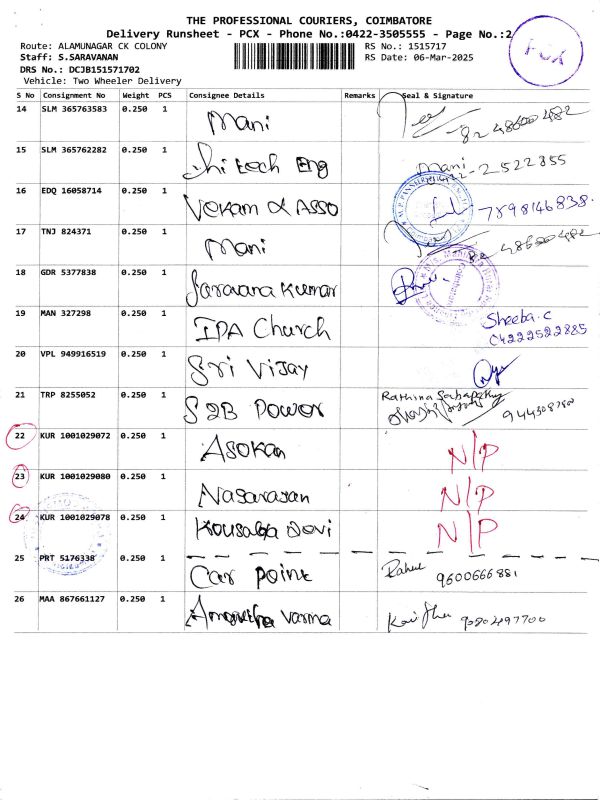 THE PROFESSIONAL COURIERS, COIMBATORE
Delivery Runsheet - PCX - Phone No.:0422-3505555 - Page No.:2
Route: ALAMUNAGAR CK COLONY RS No.: 1515717
Staff: S.SARAVANAN RS Date: 06-Mar-2025
DRS No.: DCJB151571702
Vehicle: Two Wheeler Delivery
PCX
S No Consignment No Weight PCS Consignee Details Remarks Seal & Signature
14 SLM 365763583 0.250 1 Mani 82 48600 482
15 SLM 365762282 0.250 1 Hi tech Eng Mani 2522855
16 EDQ 16058714 0.250 1 Vekam & Asso 7898146838.
17 TNJ 824371 0.250 1 Mani 82 48600 482
18 GDR 5377838 0.250 1 Saravana Kumar
19 MAN 327298 0.250 1 IPA Church Sheeba.C
04222522885
20 VPL 949916519 0.250 1 Sri Vijay
21 TRP 8255052 0.250 1 S2B Power Rathina Sabapathy
22 KUR 1001029072 0.250 1 Asokan N/P
23 KUR 1001029080 0.250 1 Nagarajan N/P
24 KUR 1001029078 0.250 1 Kousalya Devi N/P
25 PRT 5176338 0.250 1 Car Point Rahul 9600666881
26 MAA 867661127 0.250 1 Amarutha Varma 9080497700